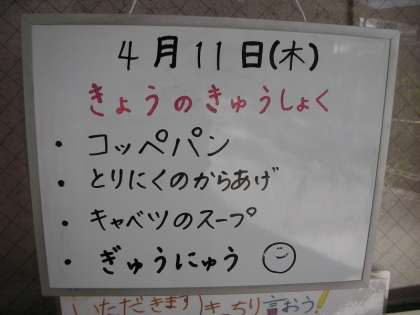 4月11日(木)
きょうのきゅうしょく
・コッペパン
・とりにくのからあげ
・キャベツのスープ
・ぎゅうにゅう
いただきます きっちり言おう!